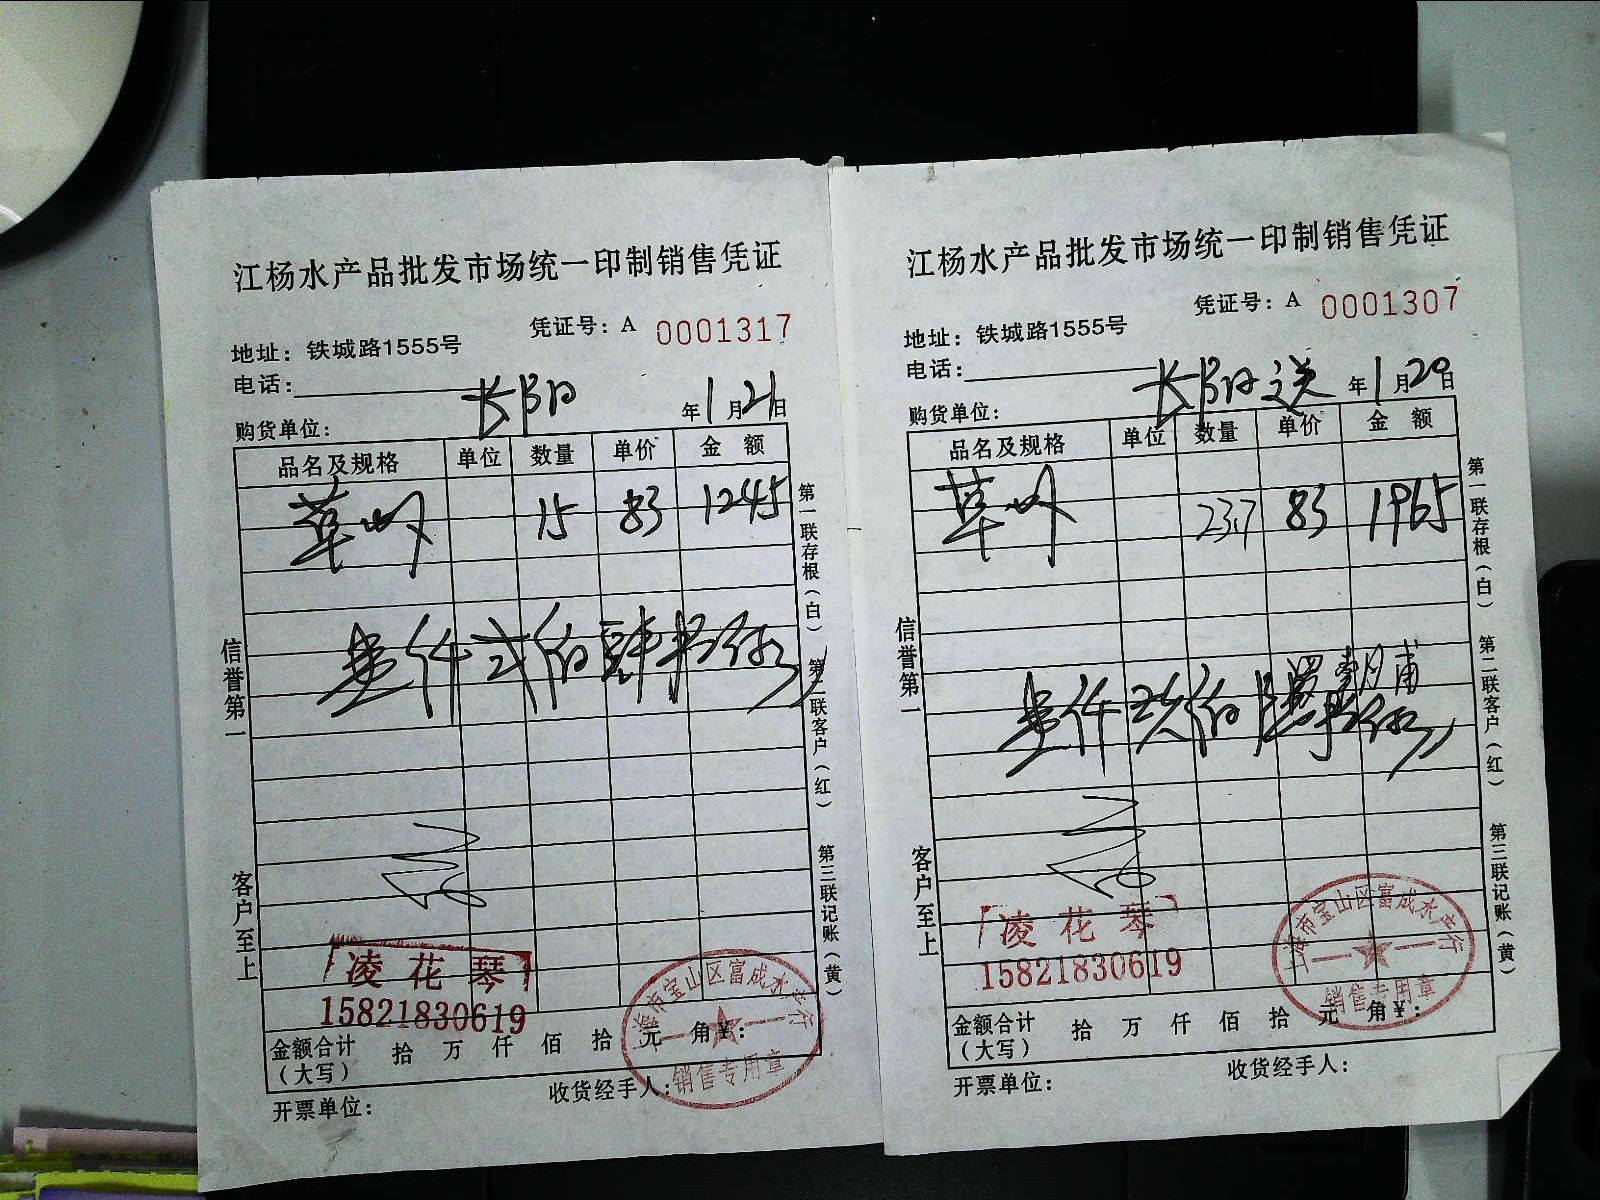 江杨水产品批发市场统一印制销售凭证
凭证号：A 0001317
地址：铁城路1555号
电话：
长阳 年1月21日
购货单位：
品名及规格 单位 数量 单价 金额
草虾 15 83 1245
壹仟贰佰肆拾伍
信誉第一
客户至上
第一联存根（白）
第二联客户（红）
第三联记账（黄）
凌花琴
15821830619
上海市宝山区富成水产行
销售专用章
金额合计（大写） 拾 万 仟 佰 拾 元 角 ¥：
开票单位：
收货经手人：
江杨水产品批发市场统一印制销售凭证
凭证号：A 0001307
地址：铁城路1555号
电话：
长阳送 年1月20日
购货单位：
品名及规格 单位 数量 单价 金额
草虾 23.7 83 1965
壹仟玖佰陆拾伍
信誉第一
客户至上
第一联存根（白）
第二联客户（红）
第三联记账（黄）
凌花琴
15821830619
上海市宝山区富成水产行
销售专用章
金额合计（大写） 拾 万 仟 佰 拾 元 角 ¥：
开票单位：
收货经手人：